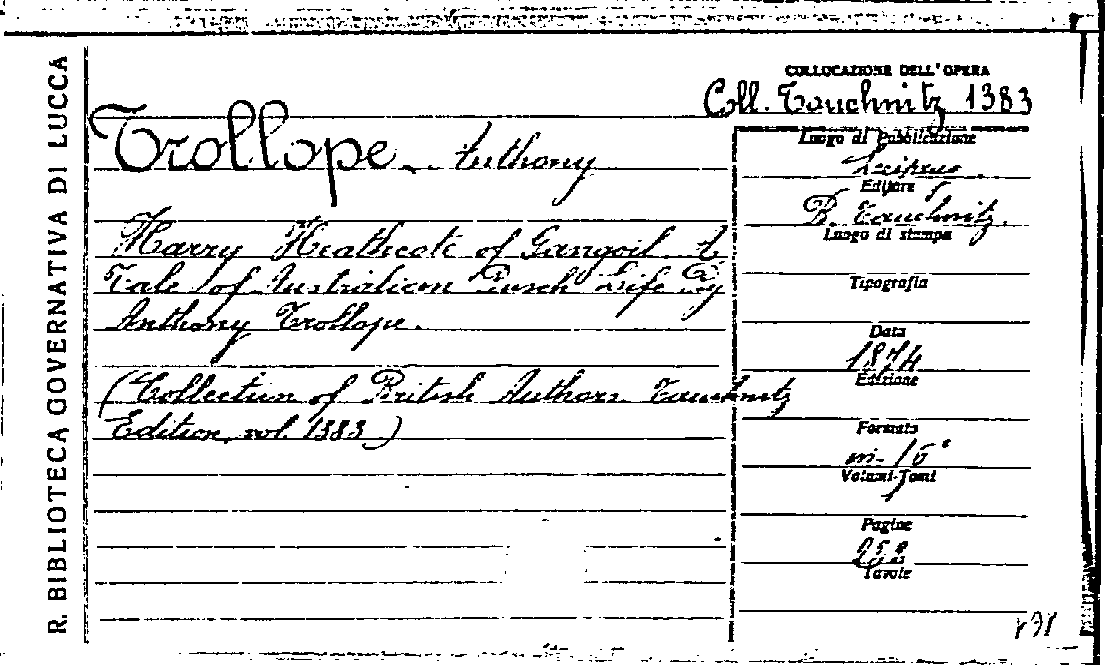 R. BIBLIOTECA GOVERNATIVA DI LUCCA
COLLOCAZIONE DELL'OPERA
Coll. Tauchnitz 1383
Trollope Anthony
Harry Heathcote of Gangoil. A
Tale of Australian Busch Life By
Anthony Trollope.
(Collection of British Authors. Tauchnitz
Edition, vol. 1383)
Luogo di Pubblicazione
Editore
B. Tauchnitz.
Luogo di stampa
Tipografia
Data
1874
Edizione
Formato
in-16°
Volumi-Tomi
Pagine
Tavole